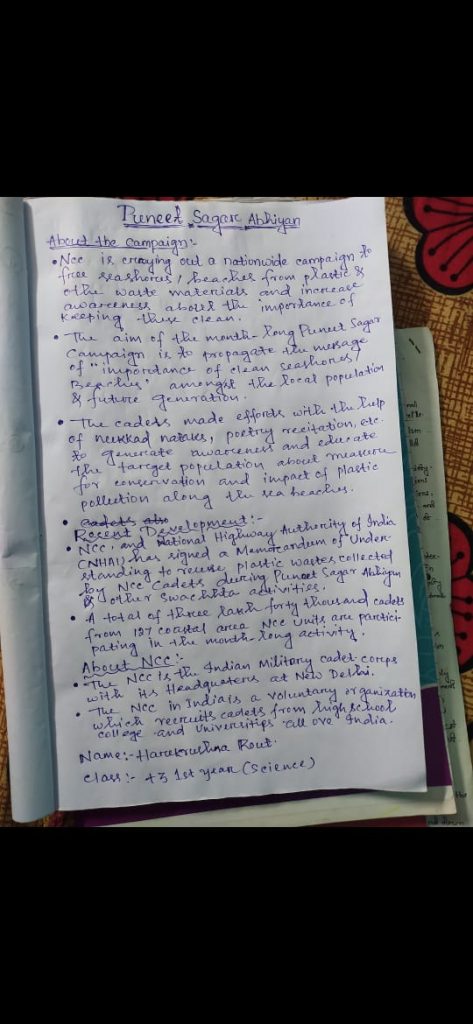 Puneet Sagar Abhiyan
About the campaign:-
• Ncc is crraying out a nationwide campaign to
free seashores / beaches from plastic &
othe waste materials and increase
awareness about the importance of
keeping these clean.
• The aim of the month-long Puneet Sagar
Campaign is to propagate the message
of "importance of clean seashores/
Beaches" amongst the local population
& future generation.
• The cadets made efforts with the help
of nukkad nataks, poetry recitation, etc.
to generate awareness and educate
the target population about measure
for conservation and impact of plastic
pollution along the sea beaches.
• Cadets also
Recent Development:-
• NCC and National Highway Authority of India
(NHAI) has signed a Memorandum of Under-
standing to reuse plastic wastes collected
by NCC Cadets during Puneet Sagar Abhiyan
& other Swachhta activities.
• A total of three lakh forty thousand cadets
from 127 coastal area NCC units are partici-
pating in the month-long activity.
About NCC:-
• The NCC is the Indian Military cadet corps
with its Headquaters at New Delhi.
• The NCC in India is a voluntary organization
which recruits cadets from high school
college and Universitips all ove India.
Name:- Harekrushna Rout.
Class:- +3 1st year (Science)